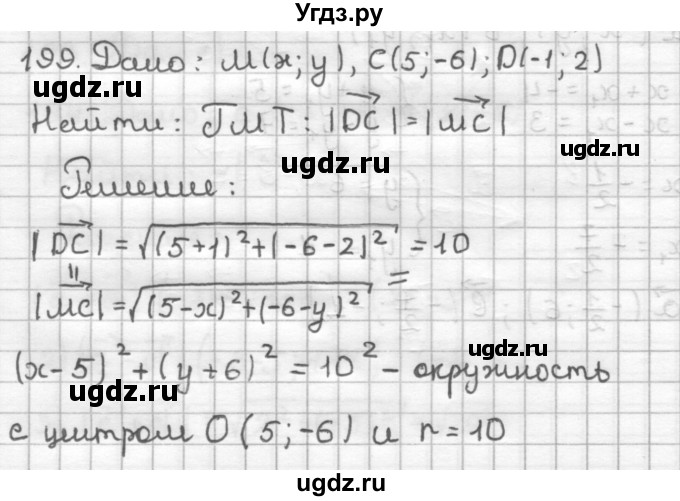 Угдз.ру
199. Дано: M(x; y), C(5; -6); D(-1; 2)
ugdz.ru ugdz.ru
Найти: ГМТ: |DC| = |MC|
ugdz.ru
Решение:
|DC| = √((5+1)² + (-6-2)²) = 10
ugdz.ru ugdz.ru
|MC| = √((5-x)² + (-6-y)²) =
(x-5)² + (y+6)² = 10² - окружность
ugdz.ru ugdz.ru
с центром O (5; -6) и r = 10
ugdz.ru